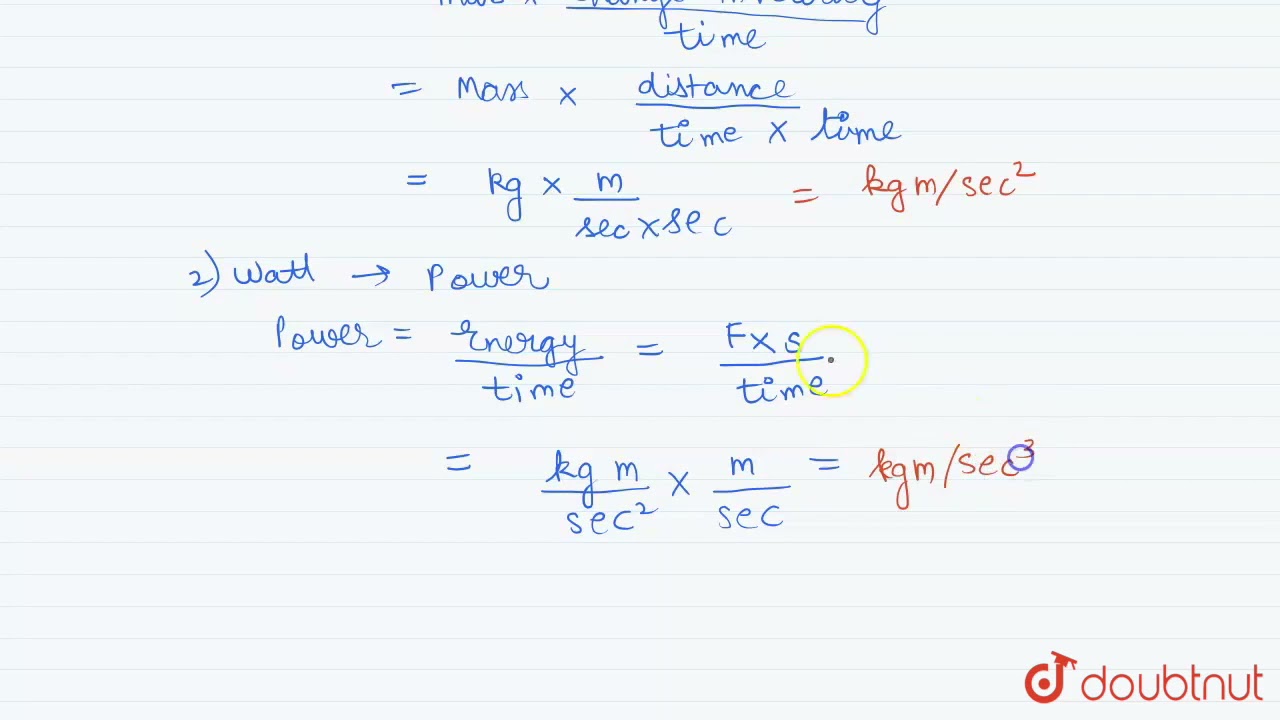 time
= Mass × distance
time × time
= kg × m / sec × sec = kg m/sec²
2) Watt → Power
Power = Energy / time = F × s / time
= kg m / sec² × m / sec = kg m/sec³
doubtnut